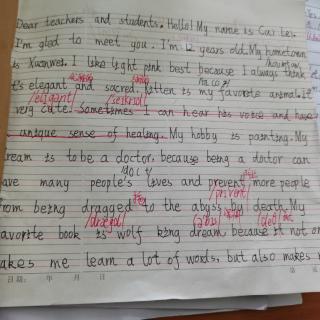 Dear teachers and students. Hello! My name is Carter.
I'm glad to meet you. I'm 12 years old. My hometown
is Xuanwei. I like light pink best because I always think
it's elegant and sacred. kitten is my favorite animal. It's
very cute. Sometimes I can hear his voice and have
a unique sense of healing. My hobby is painting. My
ream is to be a doctor, because being a doctor can
ave many people's lives and prevent more people
from being dragged to the abyss by death. My
avorite book is wolf king dream, because it not on
akes me learn a lot of words, but also makes m
日期: 年 月 日